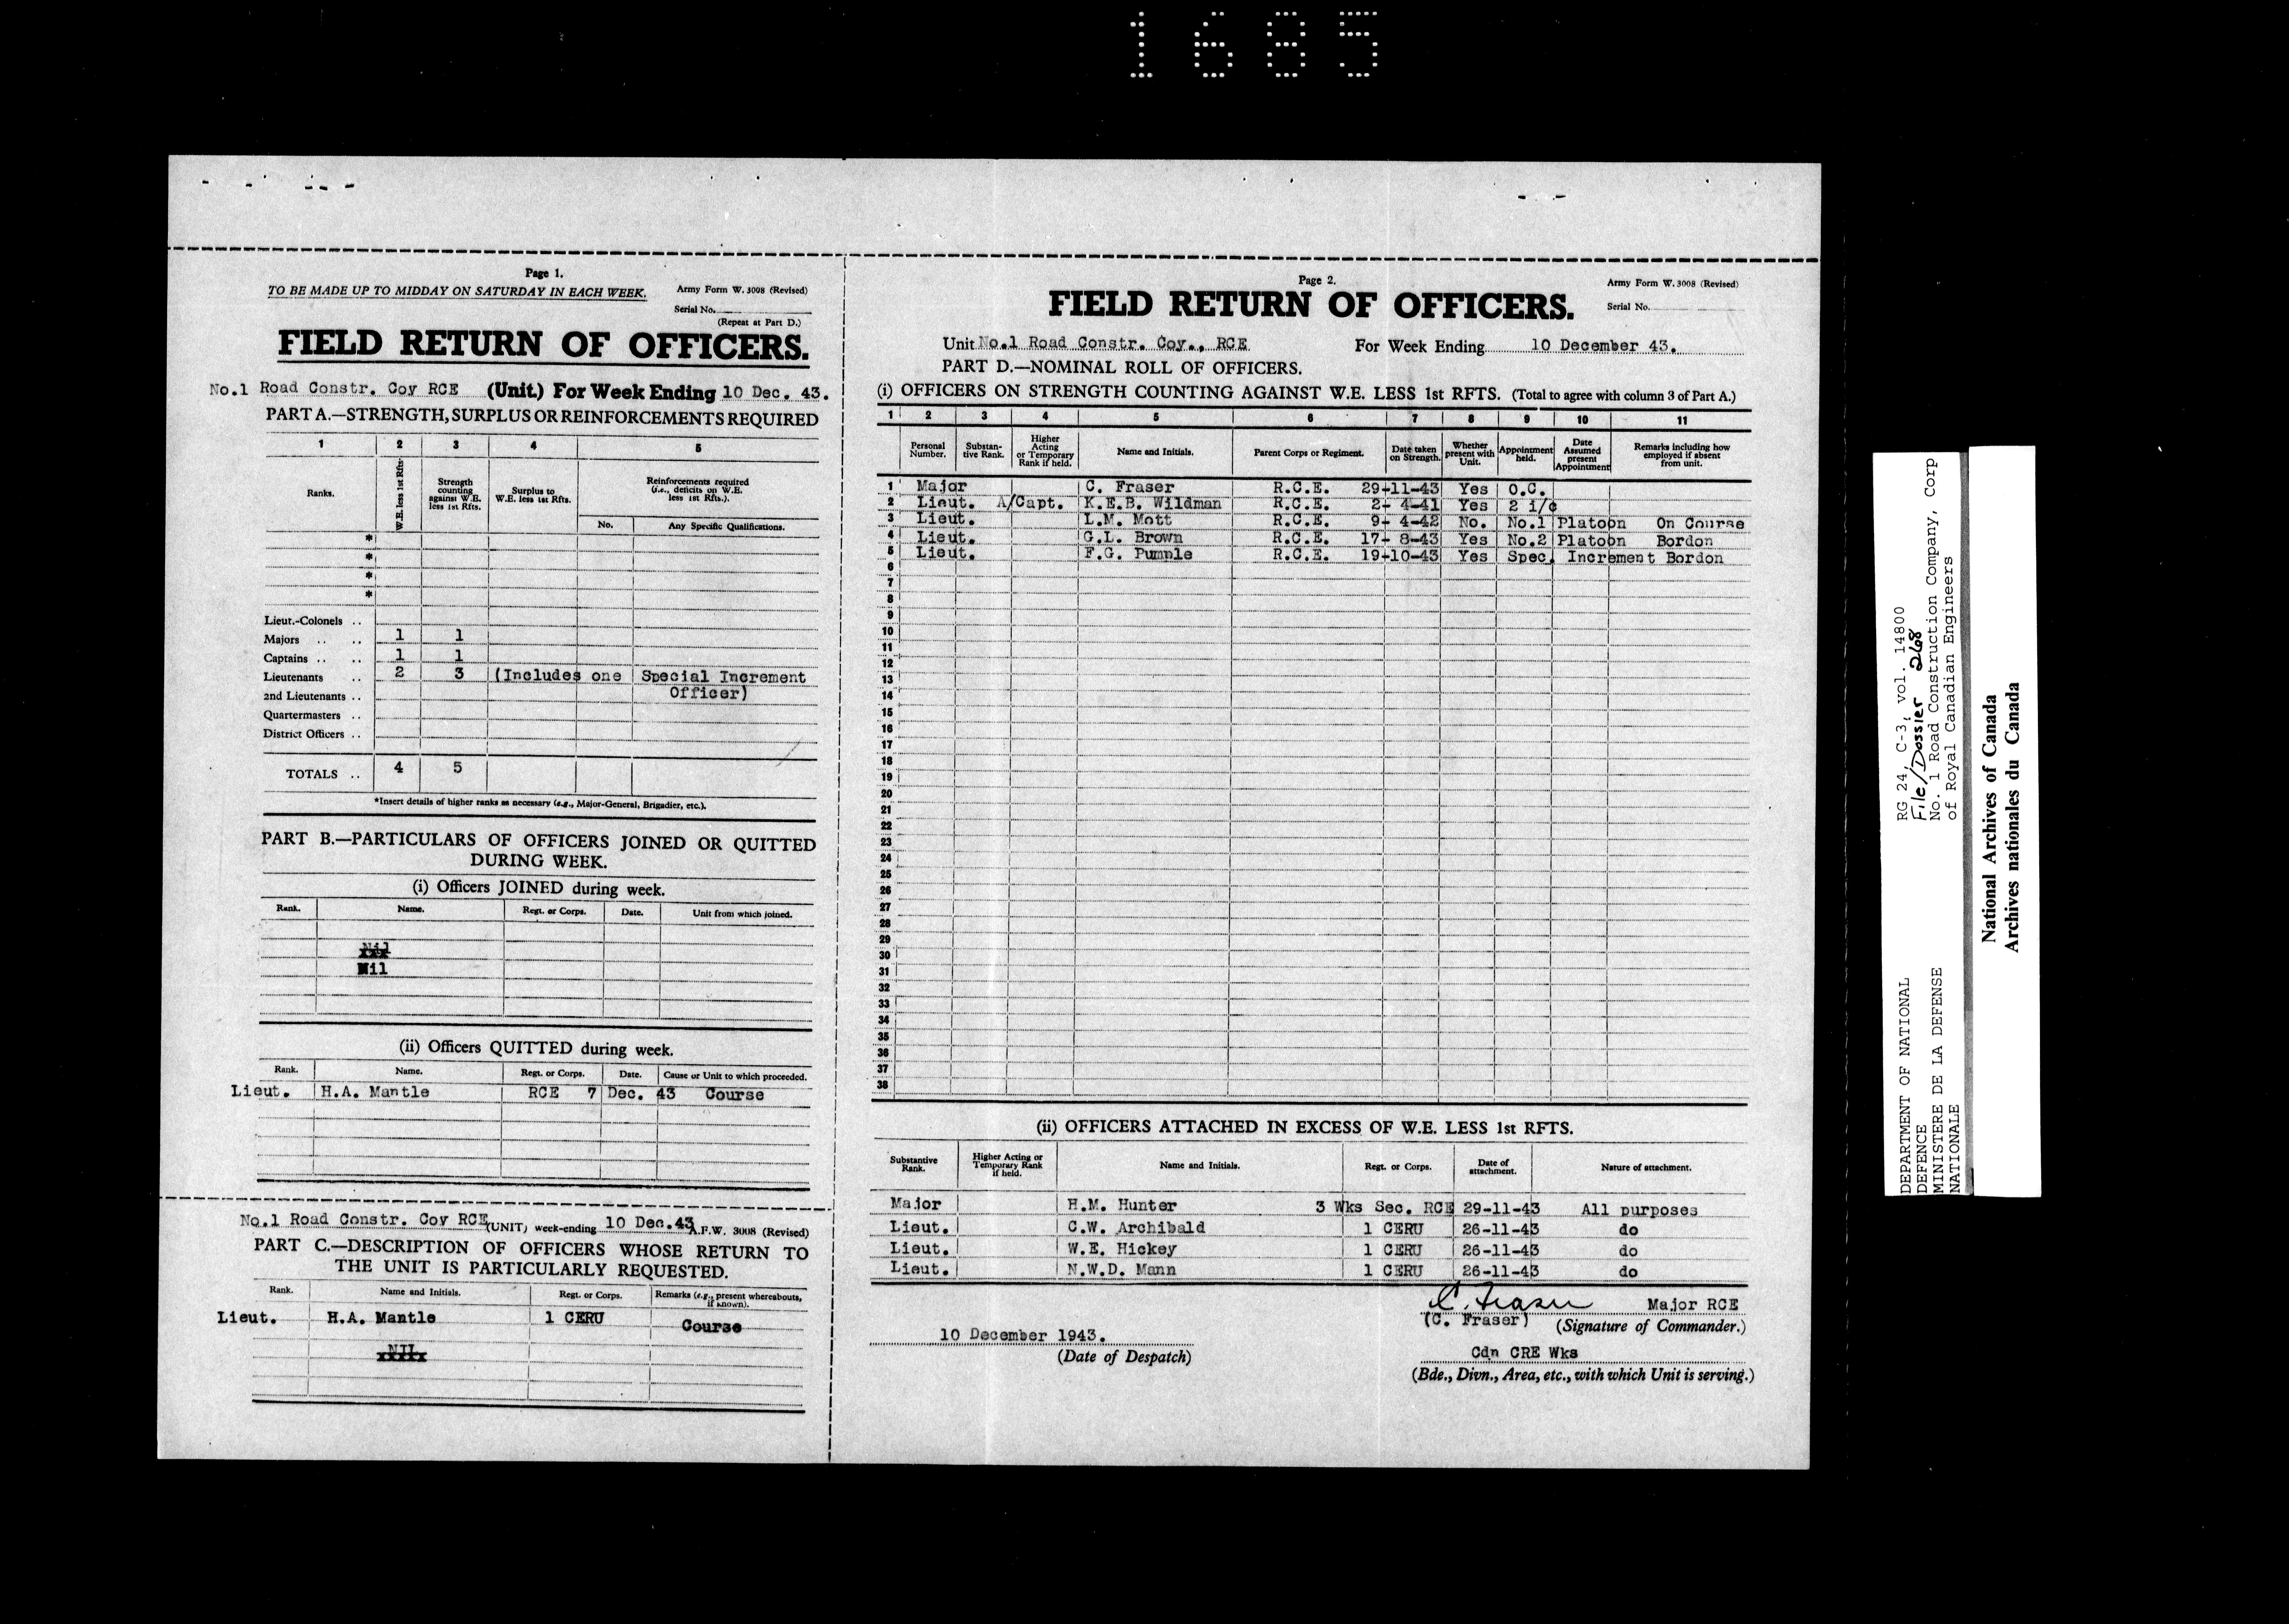 1685
Page 1.
TO BE MADE UP TO MIDDAY ON SATURDAY IN EACH WEEK.
Army Form W. 3008 (Revised)
Serial No.
(Repeat at Part D.)
FIELD RETURN OF OFFICERS.
No.1 Road Constr. Coy RCE (Unit.) For Week Ending 10 Dec. 43.
PART A.—STRENGTH, SURPLUS OR REINFORCEMENTS REQUIRED
1 2 3 4 5
Ranks. W.E. less 1st Rfts. Strength counting against W.E. less 1st Rfts. Surplus to W.E. less 1st Rfts. Reinforcements required (i.e., deficits on W.E. less 1st Rfts.).
No. Any Specific Qualifications.
*
*
*
*
Lieut.-Colonels ..
Majors .. .. 1 1
Captains .. .. 1 1
Lieutenants .. 2 3 (Includes one Special Increment
Officer)
2nd Lieutenants ..
Quartermasters ..
District Officers ..
TOTALS .. 4 5
*Insert details of higher ranks as necessary (e.g., Major-General, Brigadier, etc.).
PART B.—PARTICULARS OF OFFICERS JOINED OR QUITTED
DURING WEEK.
(i) Officers JOINED during week.
Rank. Name. Regt. or Corps. Date. Unit from which joined.
Nil
Nil
(ii) Officers QUITTED during week.
Rank. Name. Regt. or Corps. Date. Cause or Unit to which proceeded.
Lieut. H.A. Mantle RCE 7 Dec. 43 Course
No.1 Road Constr. Coy RCE (UNIT) week-ending 10 Dec.43 A.F.W. 3008 (Revised)
PART C.—DESCRIPTION OF OFFICERS WHOSE RETURN TO
THE UNIT IS PARTICULARLY REQUESTED.
Rank. Name and Initials. Regt. or Corps. Remarks (e.g., present whereabouts, if known).
Lieut. H.A. Mantle 1 CERU Course
NIL
Page 2.
Army Form W. 3008 (Revised)
FIELD RETURN OF OFFICERS.
Serial No.
Unit No.1 Road Constr. Coy., RCE For Week Ending 10 December 43.
PART D.—NOMINAL ROLL OF OFFICERS.
(i) OFFICERS ON STRENGTH COUNTING AGAINST W.E. LESS 1st RFTS. (Total to agree with column 3 of Part A.)
1 2 3 4 5 6 7 8 9 10 11
Personal Number. Substantive Rank. Higher Acting or Temporary Rank if held. Name and Initials. Parent Corps or Regiment. Date taken on Strength. Whether present with Unit. Appointment held. Date Assumed present Appointment Remarks including how employed if absent from unit.
1 Major C. Fraser R.C.E. 29-11-43 Yes O.C.
2 Lieut. A/Capt. K.E.B. Wildman R.C.E. 2- 4-41 Yes 2 i/c
3 Lieut. L.M. Mott R.C.E. 9- 4-42 No. No.1 Platoon On Course
4 Lieut. G.L. Brown R.C.E. 17- 8-43 Yes No.2 Platoon Bordon
5 Lieut. F.G. Pumple R.C.E. 19-10-43 Yes Spec. Increment Bordon
6
7
8
9
10
11
12
13
14
15
16
17
18
19
20
21
22
23
24
25
26
27
28
29
30
31
32
33
34
35
36
37
38
(ii) OFFICERS ATTACHED IN EXCESS OF W.E. LESS 1st RFTS.
Substantive Rank. Higher Acting or Temporary Rank if held. Name and Initials. Regt. or Corps. Date of attachment. Nature of attachment.
Major H.M. Hunter 3 Wks Sec. RCE 29-11-43 All purposes
Lieut. C.W. Archibald 1 CERU 26-11-43 do
Lieut. W.E. Hickey 1 CERU 26-11-43 do
Lieut. N.W.D. Mann 1 CERU 26-11-43 do
C. Fraser Major RCE
(C. Fraser) (Signature of Commander.)
10 December 1943.
(Date of Despatch)
Cdn CRE Wks
(Bde., Divn., Area, etc., with which Unit is serving.)
DEPARTMENT OF NATIONAL
DEFENCE
MINISTERE DE LA DEFENSE
NATIONALE
RG 24, C-3, vol. 14800
File/Dossier 268
No. 1 Road Construction Company, Corp
of Royal Canadian Engineers
National Archives of Canada
Archives nationales du Canada